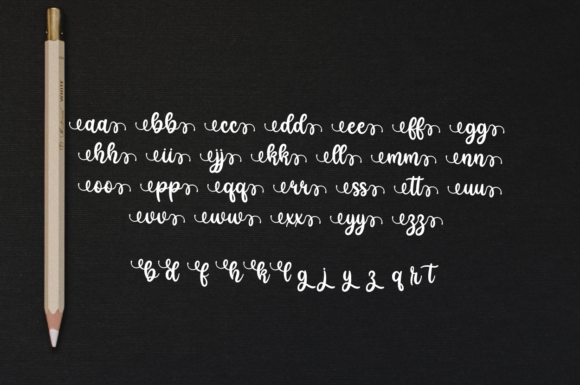 aa bb cc dd ee ff gg
hh ii jj kk ll mm nn
oo pp qq rr ss tt uu
vv ww xx yy zz
b d f h k l g j y z q r t